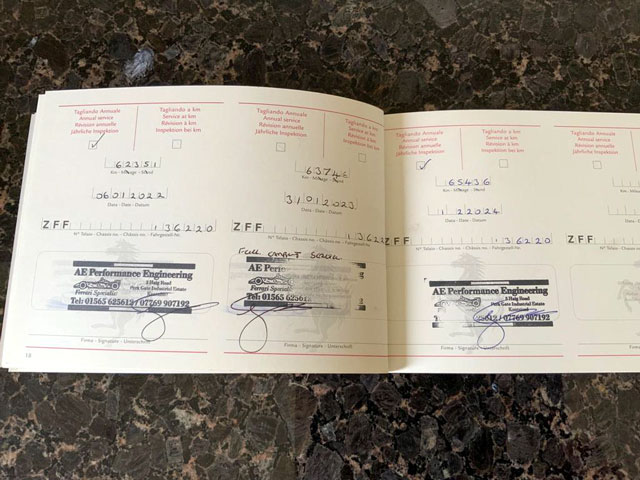 Tagliando Annuale
Annual service
Révision annuelle
Jährliche Inspektion
Tagliando a km
Service at km
Révision à km
Inspektion bei km
62351
Km - Mileage - Stand
06012022
Data - Date - Datum
ZFF 136220
N° Telaio - Chassis no. - Fahrgestell-Nr.
AE Performance Engineering
3 Haig Road
Park Gate Industrial Estate
Knutsford
Ferrari Specialist
Tel: 01565 625612 / 07769 907192
Firma - Signature - Unterschrift
18
Tagliando Annuale
Annual service
Révision annuelle
Jährliche Inspektion
Tagliando a km
Service at km
Révision à km
Inspektion bei km
63746
Km - Mileage - Stand
31012023
Data - Date - Datum
ZFF 13622
N° Telaio - Chassis no. - Fahrgestell-Nr.
Full
AE Per
Ferrari Specialist
Tel: 01565 62561
Firma - Signature - Unterschrift
Tagliando Annuale
Annual service
Révision annuelle
Jährliche Inspektion
Tagliando a km
Service at km
Révision à km
Inspektion bei km
65436
Km - Mileage - Stand
122024
Data - Date - Datum
ZFF 136220
N° Telaio - Chassis no. - Fahrgestell-Nr.
AE Performance Engineering
3 Haig Road
Park Gate Industrial Estate
Knutsford
07769 907192
Firma - Signature - Unterschrift
Tagliando Annuale
Annual service
Révision annuelle
Jährliche Inspektion
Km - Mileage
Data - Date
ZFF
N° Telaio - Chassis
Firma